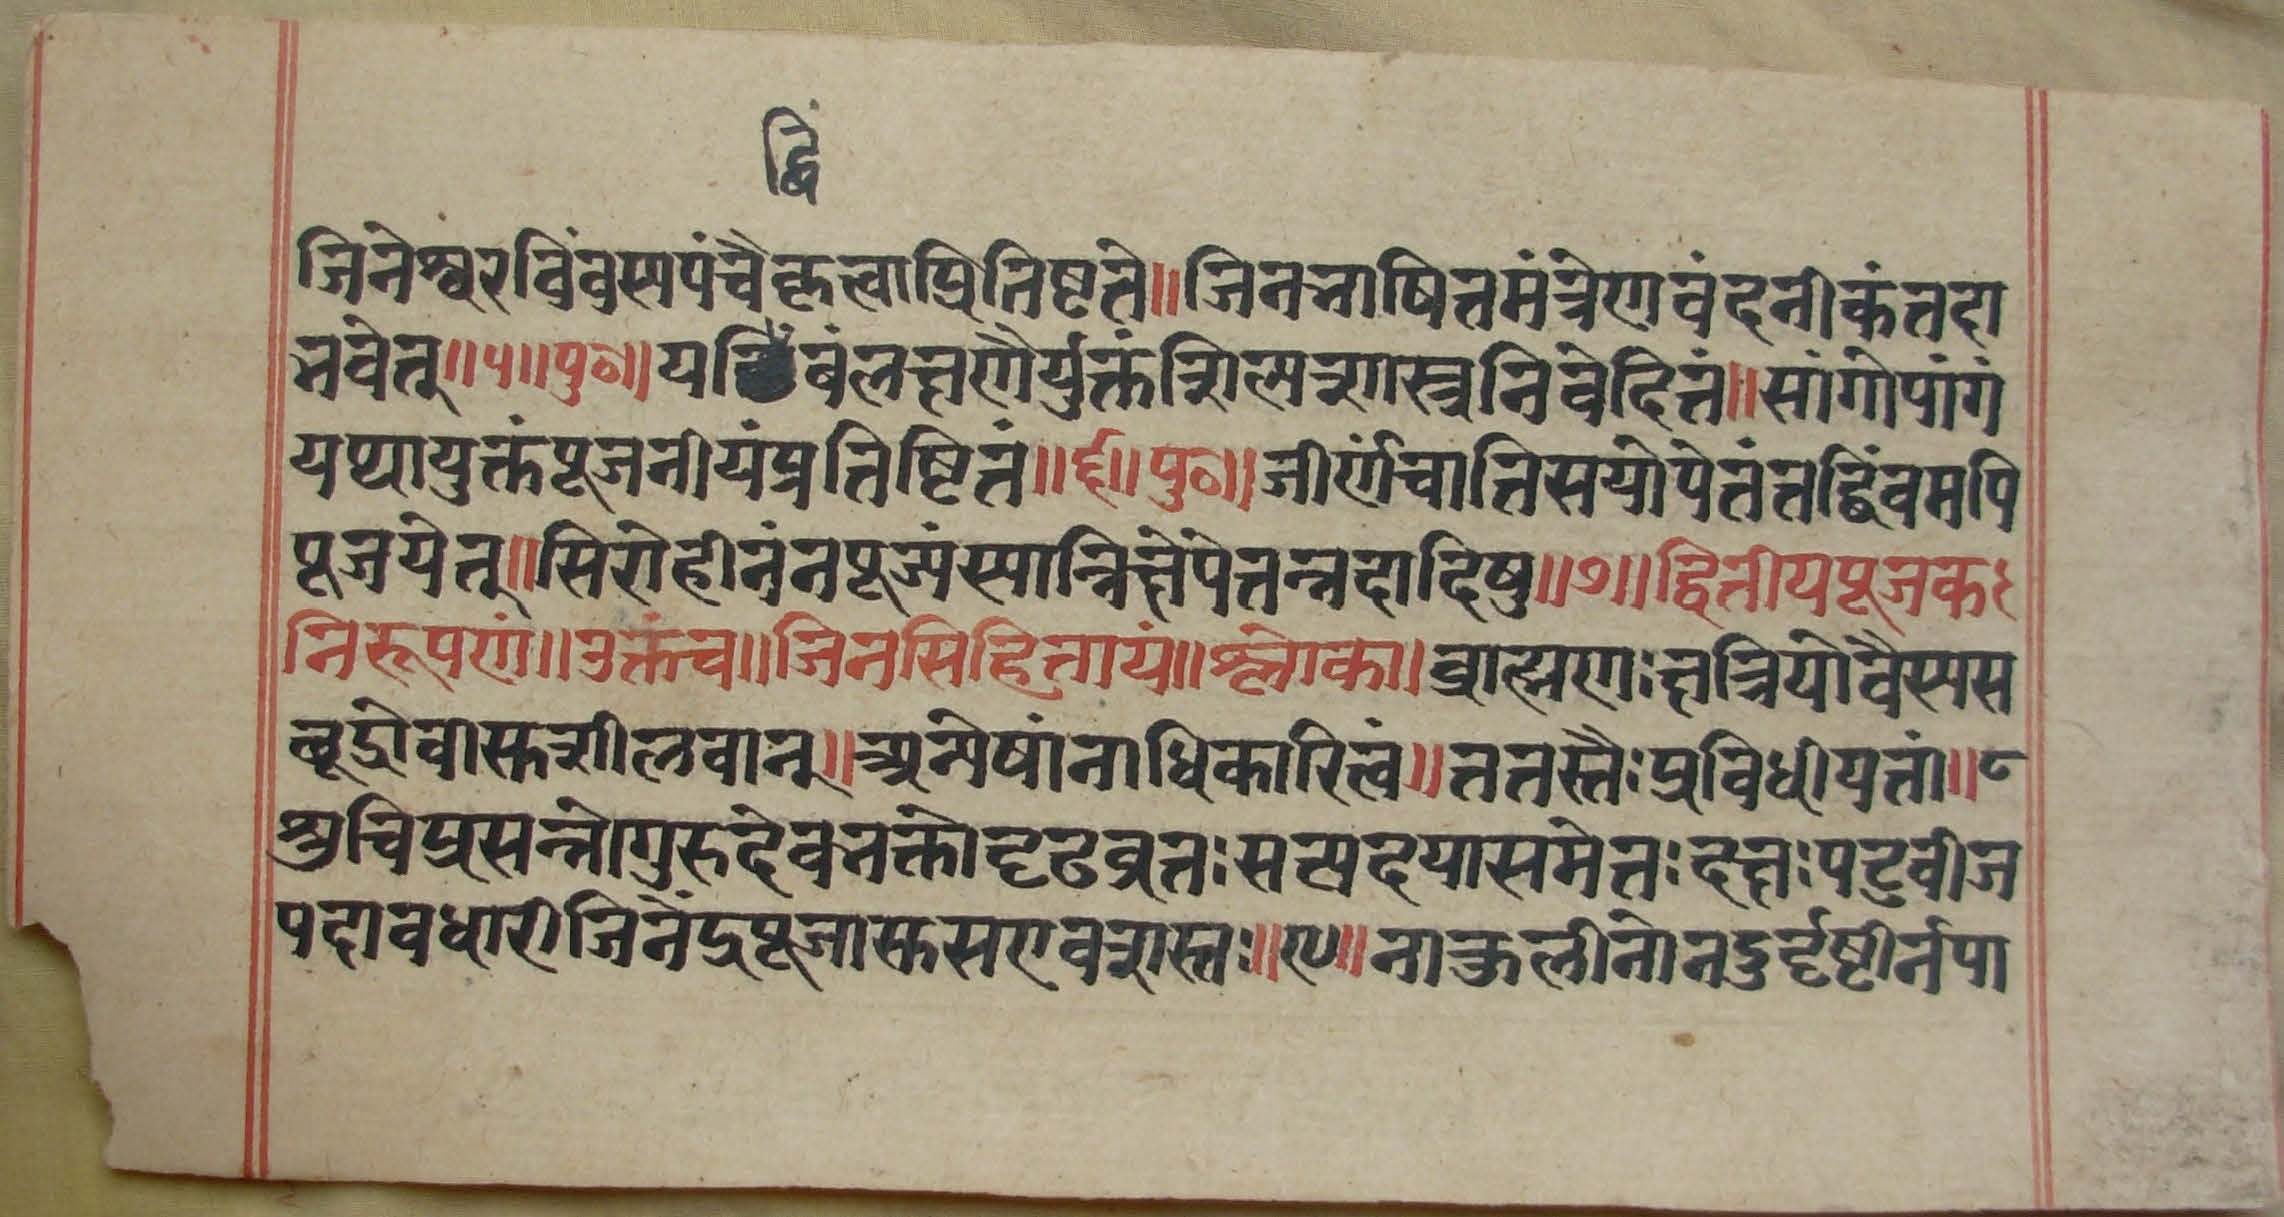 द्विं
जिनेश्वरविंवसापंचैकृत्वाप्रितिष्टते॥जिनभाषितमंत्रेणवंदनीकंतदा
भवेत्॥५॥पु०॥यविंवंलक्षणैर्युक्तंशिल्पशास्त्रनिवेदितं॥सांगोपांगं
यथायुक्तंपूजनीयंप्रतिष्टितं॥६॥पु०॥जीर्णंचातिसयोपेतंतद्विंवमपि
पूजयेत्॥सिरोहीनंनपूज्यंस्यान्निक्षेपेतन्नदादिषु॥७॥द्वितीयपूजकः
निरूपणं॥उक्तंच॥जिनसिहितायं॥श्लोका॥व्राह्मणःक्षत्रियोवैस्यस
च्छूद्रोवास्तशीलवान्॥अन्येषांनाधिकारित्वं॥ततस्तैःप्रविधीयतां॥८
शुचिप्रसन्नोगुरुदेवभक्तोदृढव्रतःसत्यदयासमेतःदक्षःपटुवीज
पदावधारीजिनेंद्रपूजास्तसएवशस्तः॥९॥नाकुलीनोनदुर्दृष्टीर्नपा